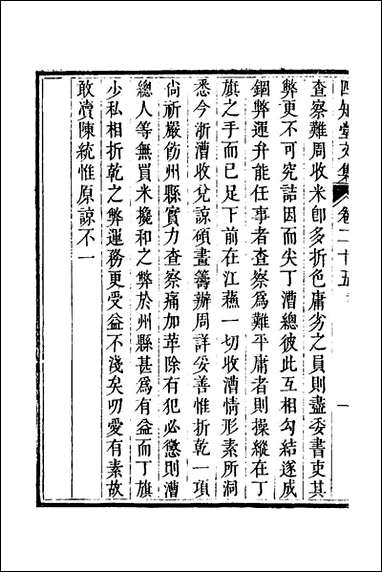 四知堂文集　卷二十五　一
查察難周收米卽多折色庸劣之員則盡委書吏其
弊更不可究詰因而尖丁漕總彼此互相勾結遂成
錮弊運弁能任事者查察爲難平庸者則操縱在丁
旗之手而已足下前在江蘓一切收漕情形素所洞
悉今浙漕收兌諒碩畫籌辦周詳妥善惟折乾一項
尙祈嚴飭州縣實力查察痛加革除有犯必懲則漕
總人等無買米攙和之弊於州縣甚爲有益而丁旗
少私相折乾之弊運務更受益不淺矣叨愛有素故
敢凟陳統惟原諒不一